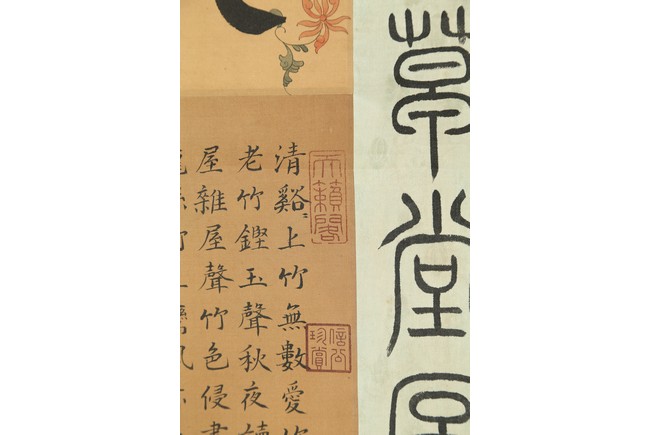 草堂
天籟閣
信公珍賞
清谿〻上竹無數愛
老竹鏗玉聲秋夜讀
屋雜屋聲竹色侵書